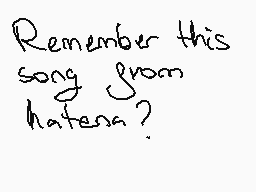 Remember this
song from
hatena?